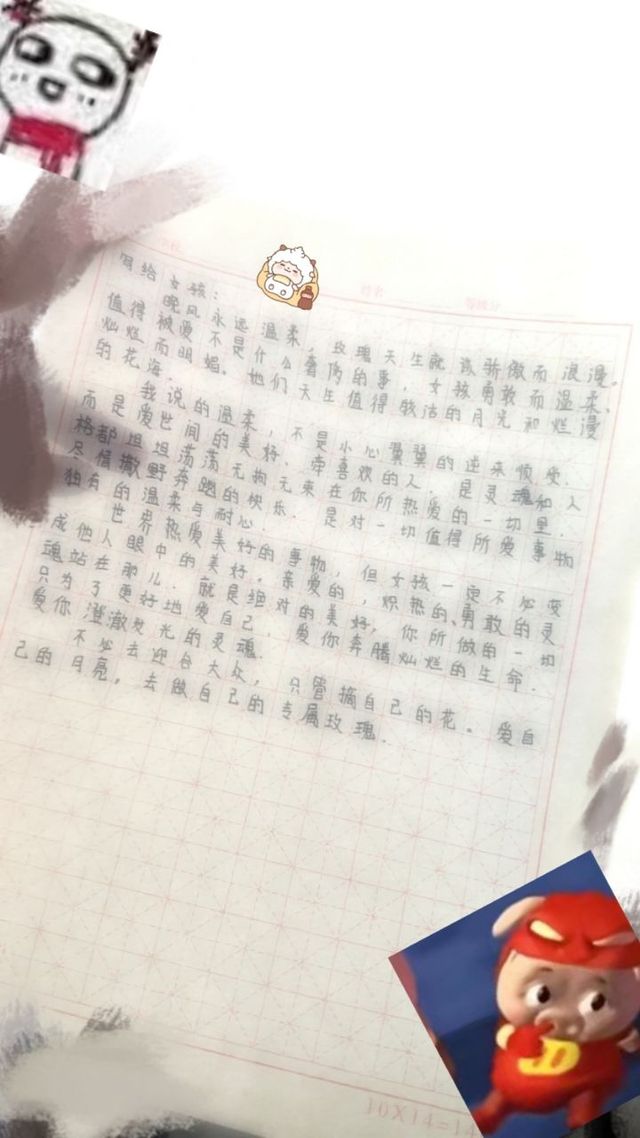 写给女孩：
晚风永远温柔，玫瑰天生就该骄傲而浪漫。
值得被爱不是什么奢侈的事，女孩勇敢而温柔、
灿烂而明媚。她们天生值得皎洁的月光和烂漫
的花海.
我说的温柔，不是小心翼翼的逆来顺受.
而是爱世间的美好、牵喜欢的人、是灵魂和人
格都坦坦荡荡无拘无束在你所热爱的一切里.
尽情撒野奔跑的快乐.是对一切值得所爱事物
独有的温柔与耐心.
世界热爱美好的事物，但女孩一定不必变
成他人眼中的美好，亲爱的，炽热的、勇敢的灵
魂站在那儿.就是绝对的美好，你所做的一切
只为了更好地爱自己、爱你奔腾灿烂的生命.
爱你澄澈发光的灵魂.
不必去迎合大众，只管摘自己的花。爱自
己的月亮，去做自己的专属玫瑰.
10X14=14
D